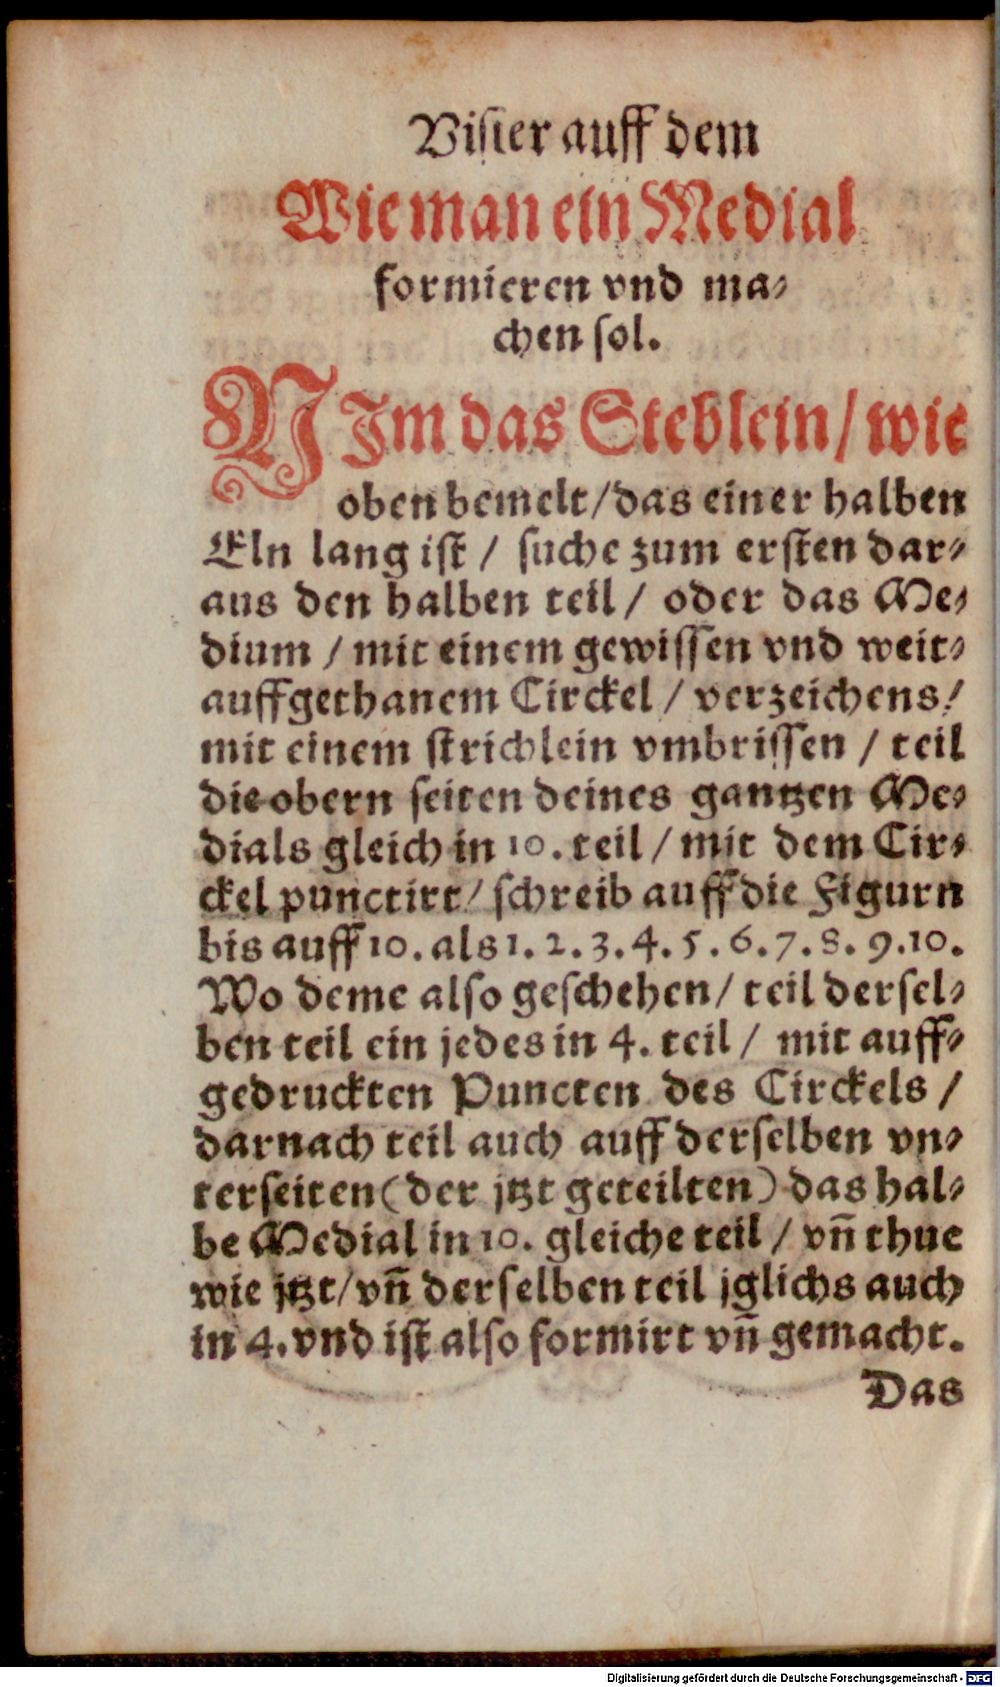 Visier auff dem
Wie man ein Medial
formieren vnd ma⸗
chen sol.
NIm das Steblein / wie
oben bemelt / das einer halben
Eln lang ist / suche zum ersten dar⸗
aus den halben teil / oder das Me⸗
dium / mit einem gewissen vnd weit⸗
auffgethanem Circkel / verzeichens /
mit einem strichlein vmbrissen / teil
die obern seiten deines gantzen Me⸗
dials gleich in 10. teil / mit dem Cir⸗
ckel punctirt / schreib auff die Figurn
bis auff 10. als 1. 2. 3. 4. 5. 6. 7. 8. 9. 10.
Wo deme also geschehen / teil dersel⸗
ben teil ein jedes in 4. teil / mit auff⸗
gedruckten Puncten des Circkels /
darnach teil auch auff derselben vn⸗
terseiten (der jtzt geteilten) das hal⸗
be Medial in 10. gleiche teil / vn̄ thue
wie jtzt / vn̄ derselben teil jglichs auch
in 4. vnd ist also formirt vn̄ gemacht.
Das
Digitalisierung gefördert durch die Deutsche Forschungsgemeinschaft - DFG